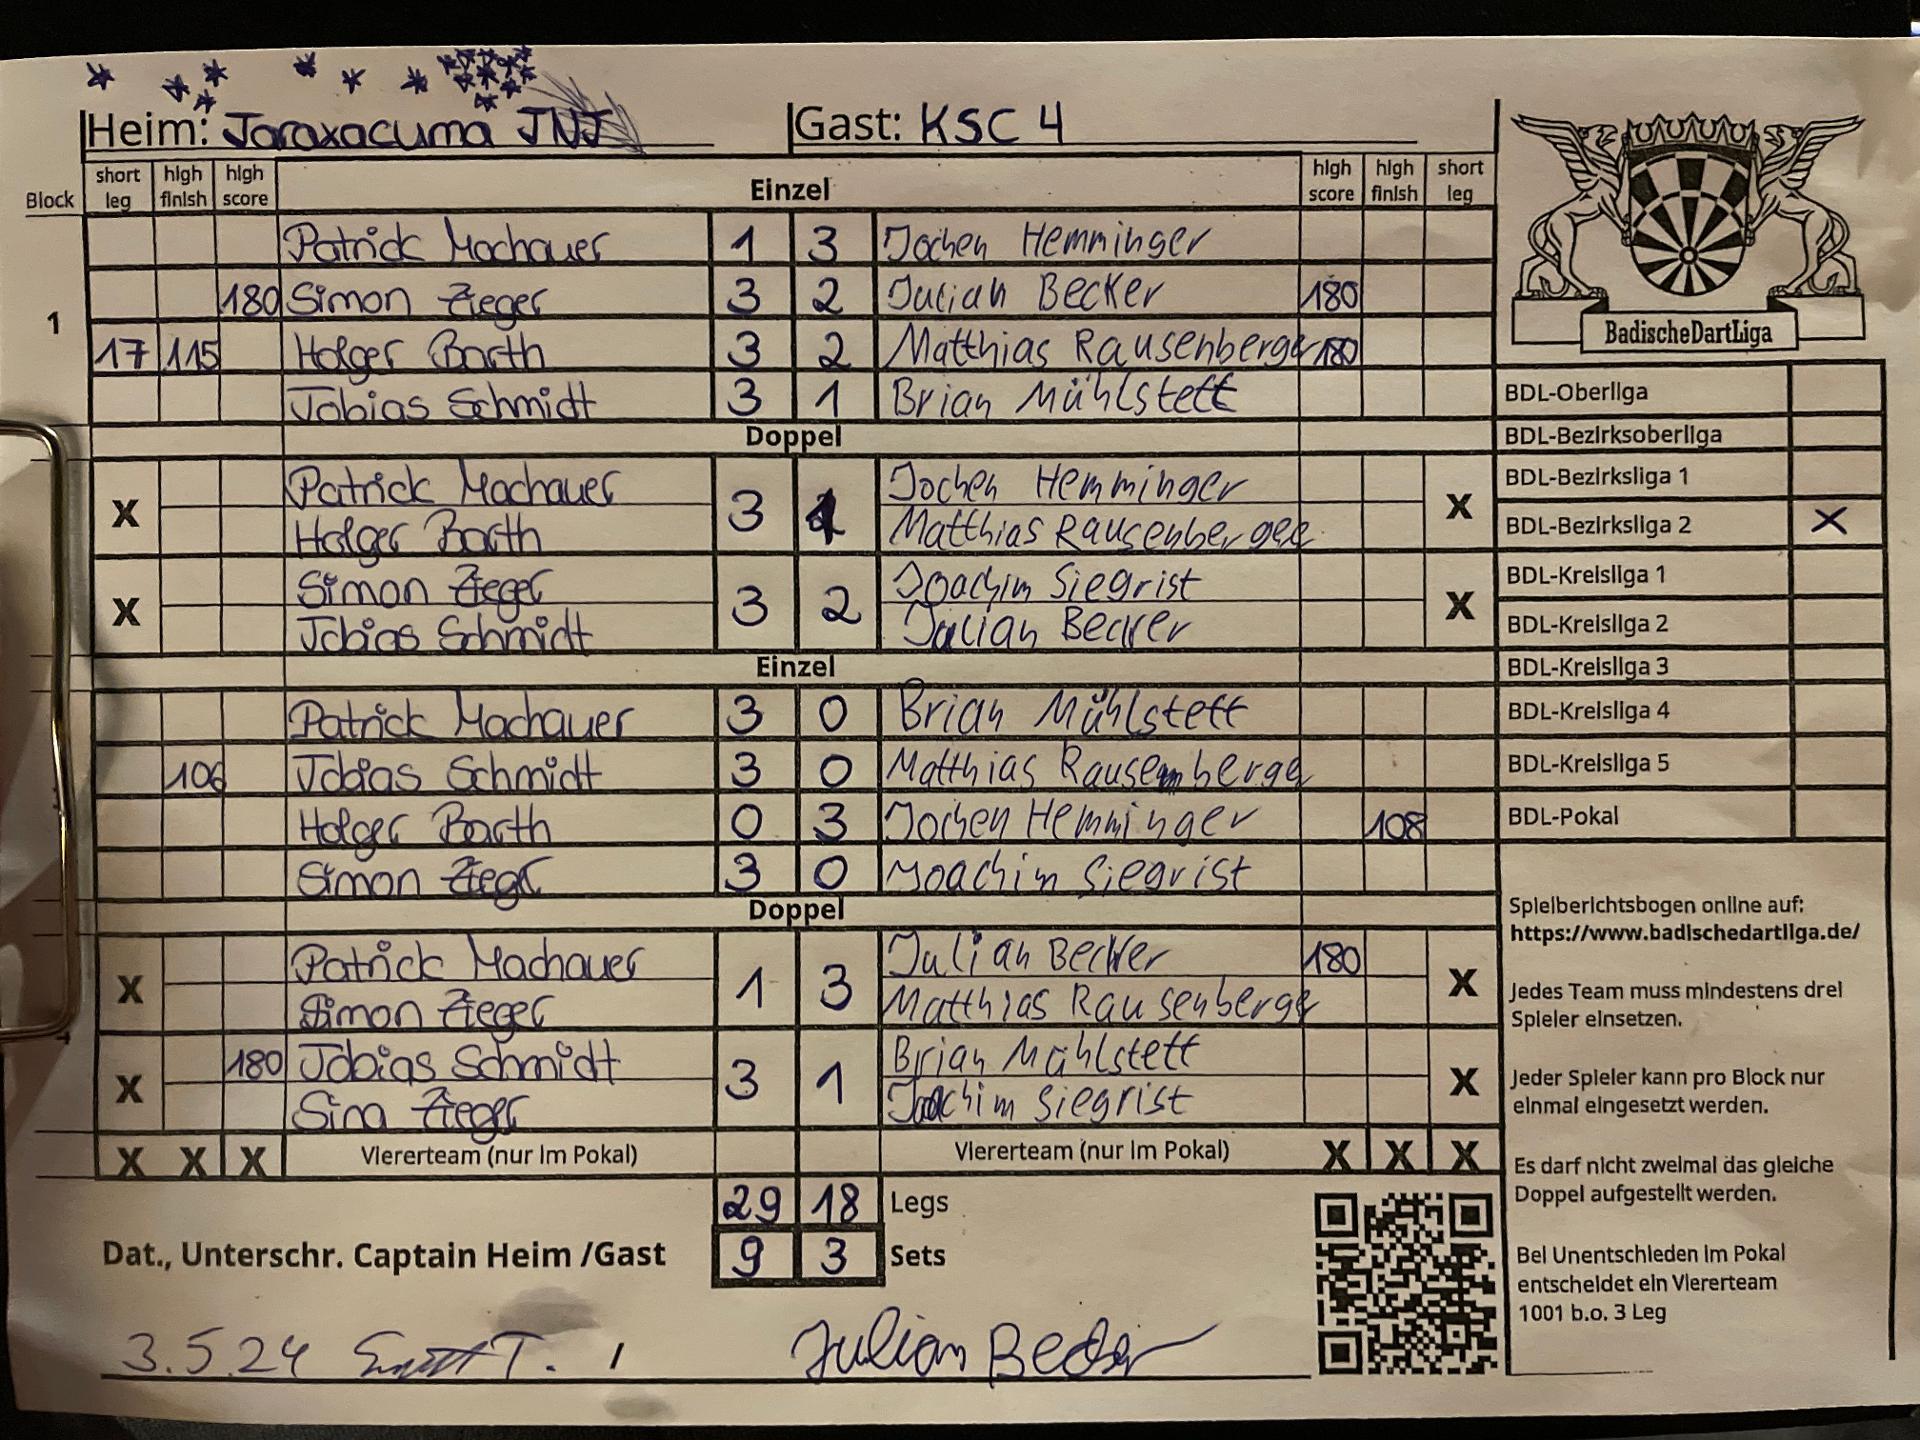 Heim: Taraxacuma TNT Gast: KSC 4
Block short leg high finish high score Einzel high score high finish short leg
Patrick Machauer 1 3 Jochen Hemminger
180 Simon Zieger 3 2 Julian Becker 180
1
17 115 Holger Barth 3 2 Matthias Rausenberger 180
Tobias Schmidt 3 1 Brian Mühlstett
Doppel
Patrick Machauer Jochen Hemminger
X 3 1 X
Holger Barth Matthias Rausenberger
Simon Zieger Joachim Siegrist
X 3 2 X
Tobias Schmidt Julian Becker
Einzel
Patrick Machauer 3 0 Brian Mühlstett
106 Tobias Schmidt 3 0 Matthias Rausenberge
Holger Barth 0 3 Jochen Hemminger 108
Simon Ziegr 3 0 Joachim Siegrist
Doppel
Patrick Machauer Julian Becker 180
X 1 3 X
Simon Zieger Matthias Rausenberge
180 Tobias Schmidt Brian Mühlstett
X 3 1 X
Sina Zieger Joachim Siegrist
X X X Viererteam (nur im Pokal) Viererteam (nur im Pokal) X X X
29 18 Legs
Dat., Unterschr. Captain Heim /Gast 9 3 Sets
3.5.24 T. / Julian Becker
BadischeDartLiga
BDL-Oberliga
BDL-Bezirksoberliga
BDL-Bezirksliga 1
BDL-Bezirksliga 2 X
BDL-Kreisliga 1
BDL-Kreisliga 2
BDL-Kreisliga 3
BDL-Kreisliga 4
BDL-Kreisliga 5
BDL-Pokal
Spielberichtsbogen online auf:
https://www.badischedartliga.de/
Jedes Team muss mindestens drei
Spieler einsetzen.
Jeder Spieler kann pro Block nur
einmal eingesetzt werden.
Es darf nicht zweimal das gleiche
Doppel aufgestellt werden.
Bei Unentschieden im Pokal
entscheidet ein Viererteam
1001 b.o. 3 Leg